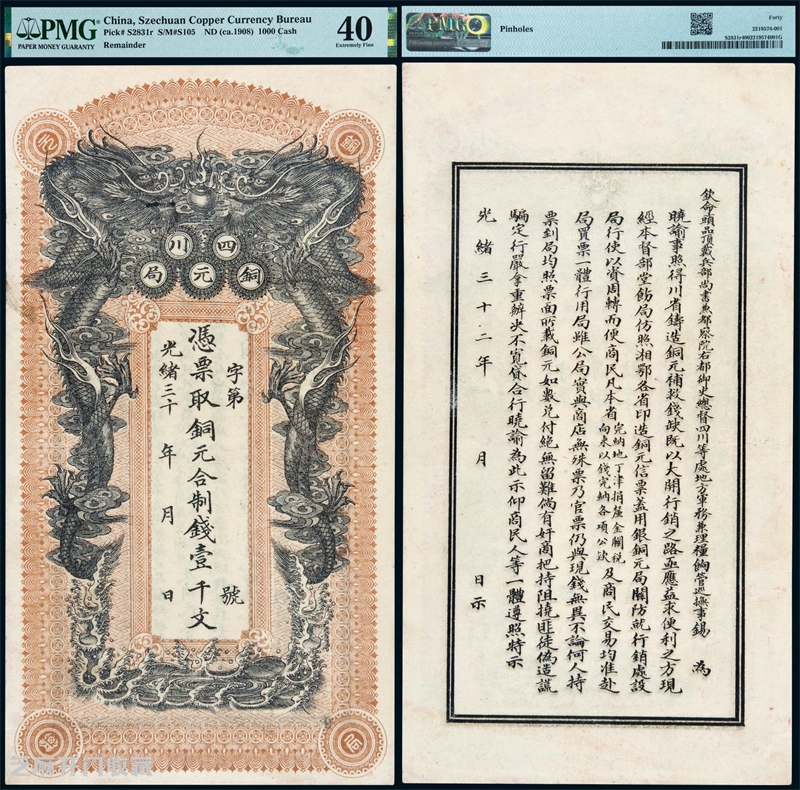 PMG
PAPER MONEY GUARANTY
China, Szechuan Copper Currency Bureau
Pick# S2831r S/M#S105 ND (ca.1908) 1000 Cash
Remainder
40
Extremely Fine
四川
銅元局
字第 號
憑票取銅元合制錢壹千文
光緒三十 年 月 日
芝麻开门收藏
PMG
Pinholes
Forty
2219574-001
S2831r4002219574001G
欽命頭品頂戴兵部尚書兼都察院右都御史總督四川等處地方軍務兼理糧餉管巡撫事錫 為
曉諭事照得川省鑄造銅元補救錢缺既以大開行銷之路亟應益求便利之方現
經本督部堂飭局仿照湘鄂各省印造銅元信票蓋用銀銅元局關防就行銷處設
局行使以資周轉而便商民凡本省完納地丁津捐釐金關稅向來以錢完納各項公款及商民交易均准赴
局買票一體行用局雖公局實與商店無殊票乃官票仍與現錢無異不論何人持
票到局均照票面所載銅元如數兌付絕無留難倘有奸商把持阻撓匪徒偽造謊
騙定行嚴拿重辦決不寬貸合行曉諭為此示仰商民人等一體遵照特示
光緒三十二年 月 日示